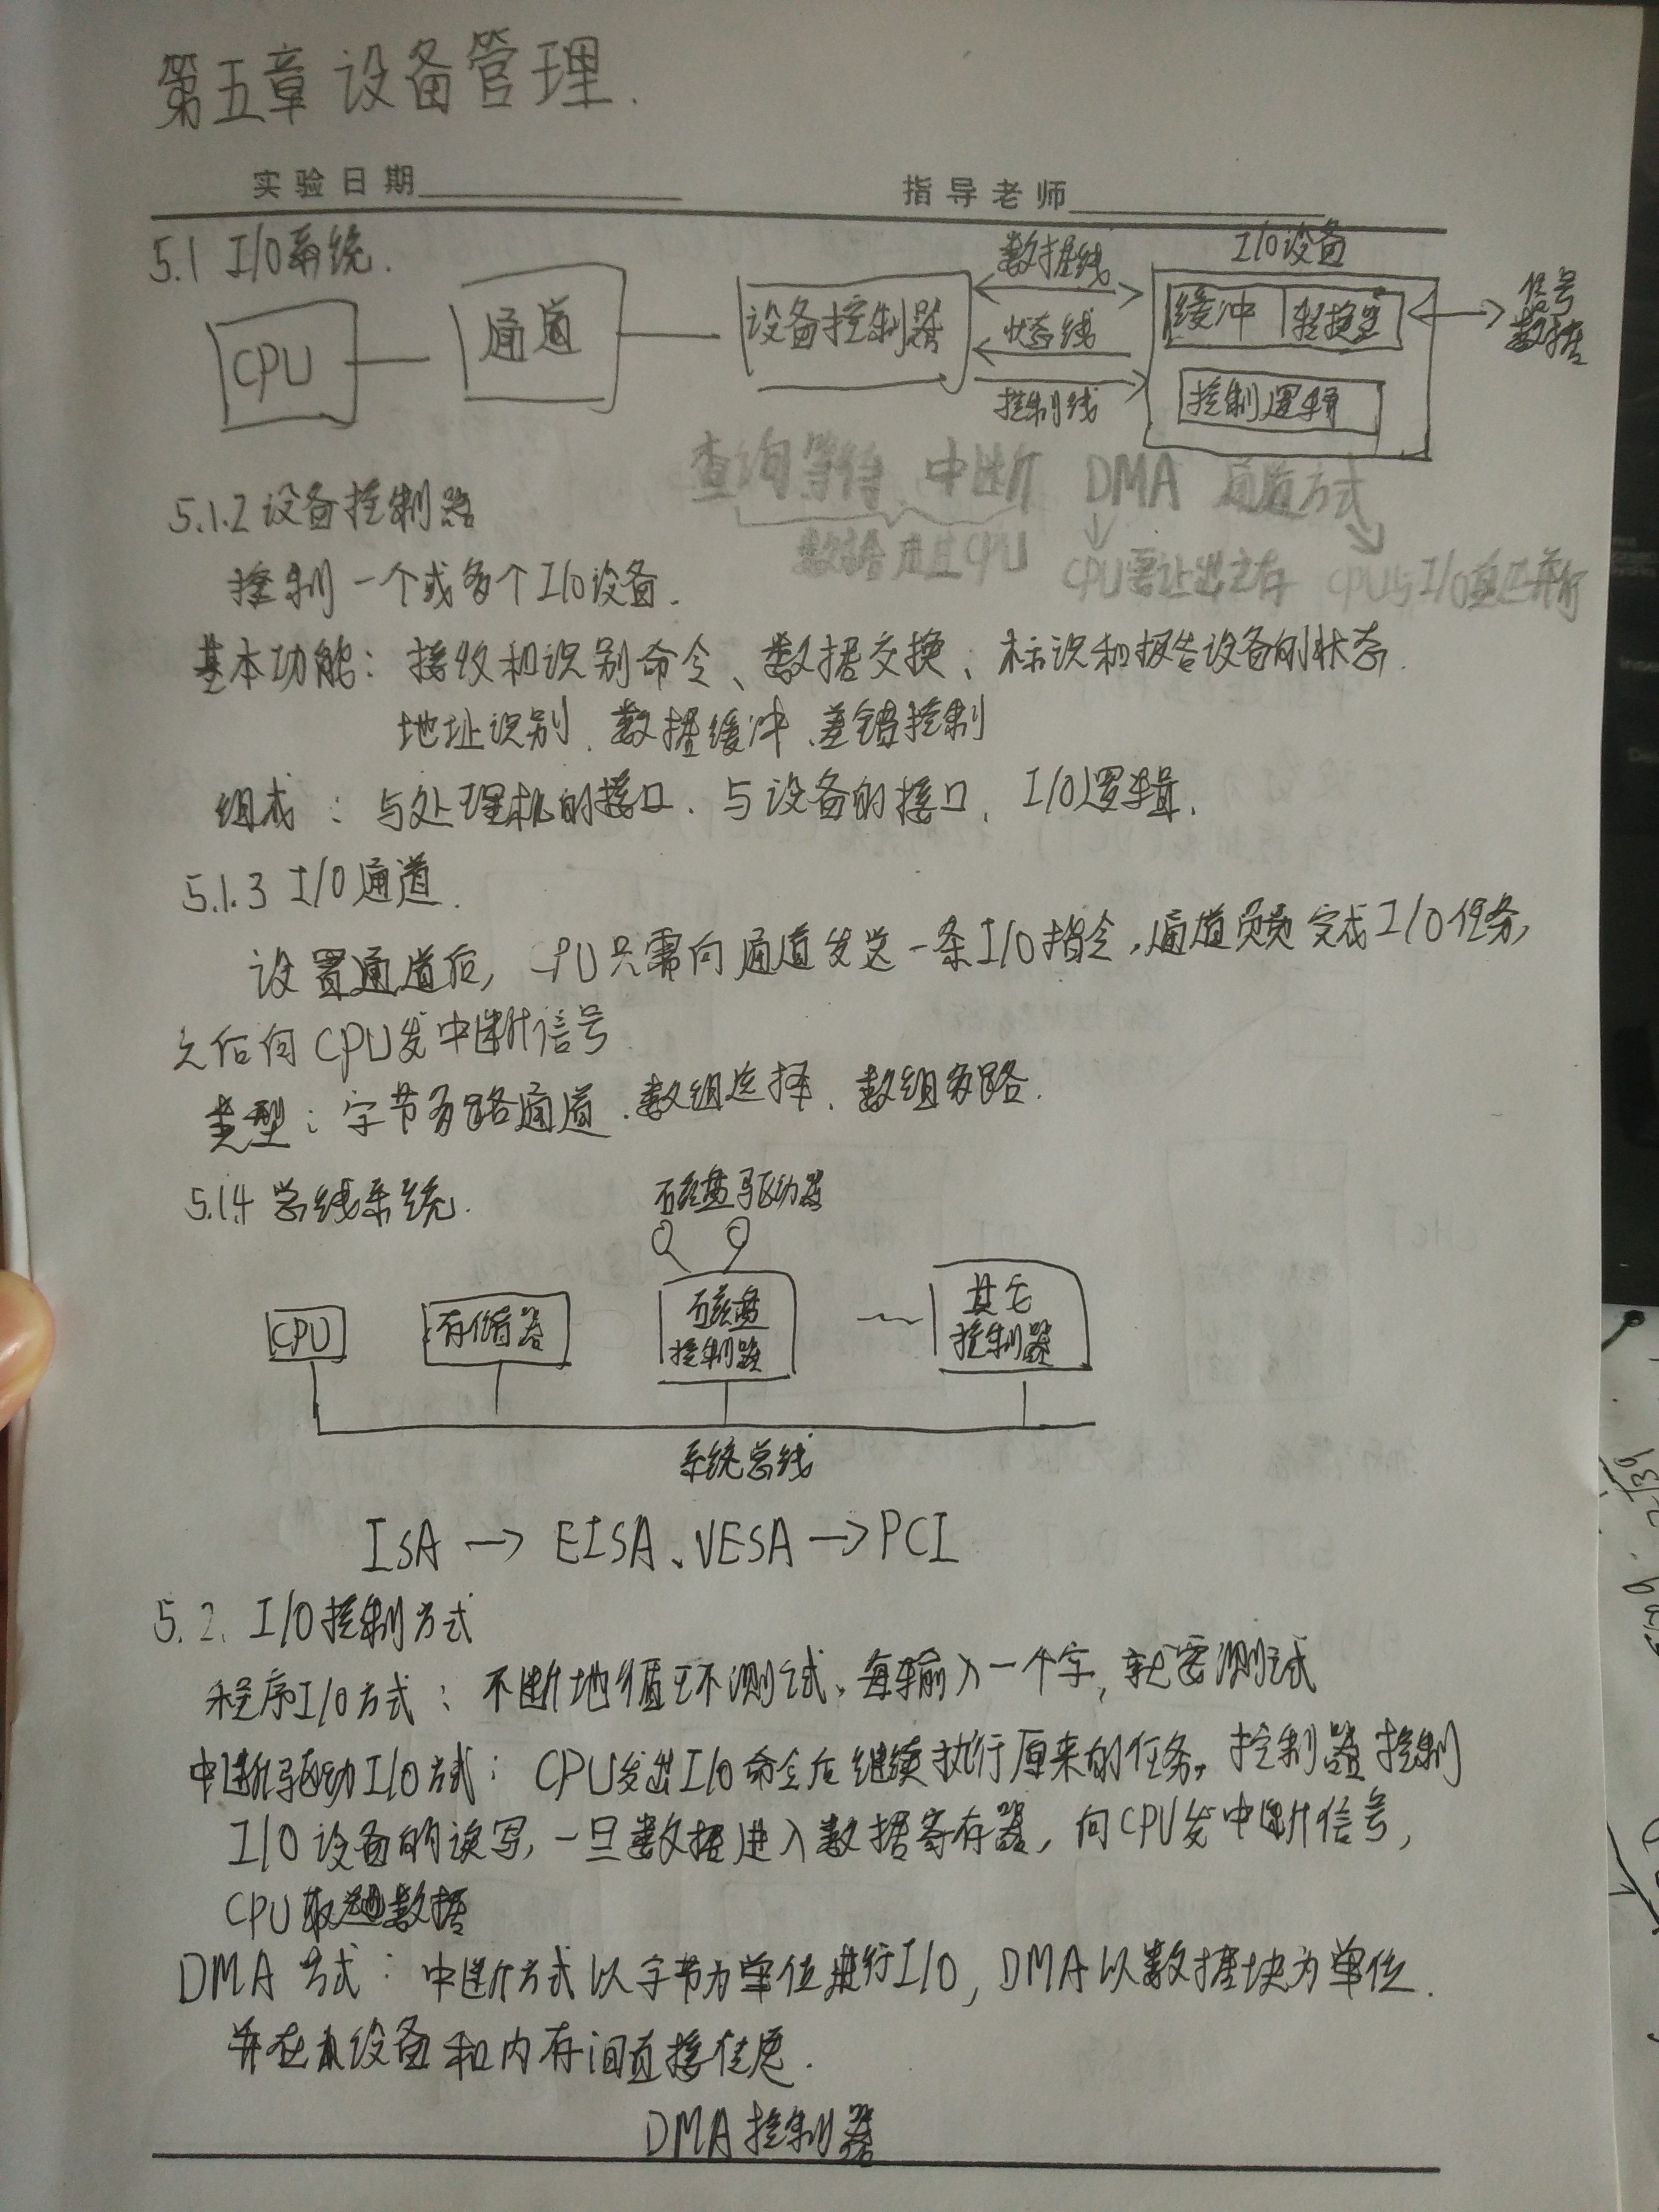 第五章 设备管理.
实验日期 指导老师
5.1 I/O系统.
CPU
通道
设备控制器
数据线
状态线
控制线
I/O设备
缓冲 转换室
控制逻辑
信号
数据
查询等待、中断 DMA 通道方式
数据进过CPU CPU需让出主存 CPU与I/O真正并行
5.1.2 设备控制器
控制一个或多个I/O设备.
基本功能: 接收和识别命令、数据交换、标识和报告设备的状态.
地址识别、数据缓冲、差错控制
组成: 与处理机的接口、与设备的接口、I/O逻辑.
5.1.3 I/O通道.
设置通道后, CPU只需向通道发送一条I/O指令,通道负责完成I/O任务,
之后向CPU发中断信号
类型: 字节多路通道、数组选择、数组多路.
5.1.4 总线系统.
磁盘驱动器
CPU
存储器
磁盘
控制器
其它
控制器
系统总线
ISA → EISA、VESA → PCI
5.2. I/O控制方式
程序I/O方式: 不断地循环测试、每输入一个字,就要测试
中断驱动I/O方式: CPU发出I/O命令后继续执行原来的任务,控制器控制
I/O设备的读写,一旦数据进入数据寄存器,向CPU发中断信号,
CPU取数据
DMA方式: 中断方式以字节为单位进行I/O, DMA以数据块为单位.
并在设备和内存间直接传送.
DMA控制器